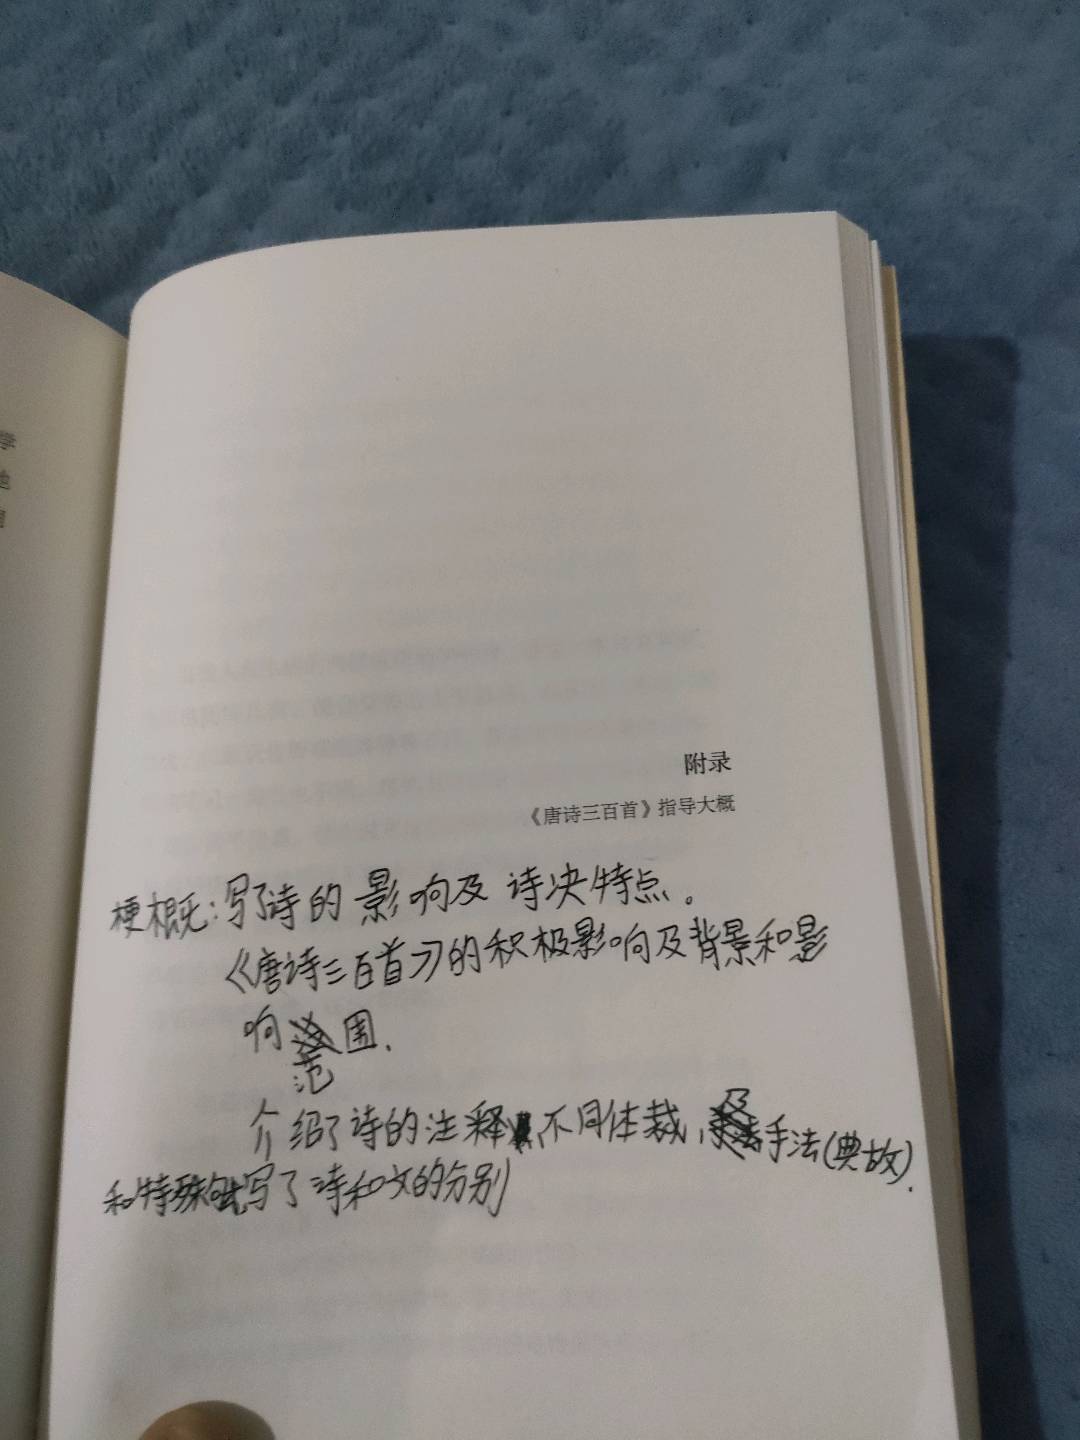 学
地
附录
《唐诗三百首》指导大概
梗概:写了诗的影响及诗决特点。
《唐诗三百首》的积极影响及背景和影
响范围.
介绍了诗的注释,不同体裁,及手法(典故).
和特殊句式写了诗和文的分别